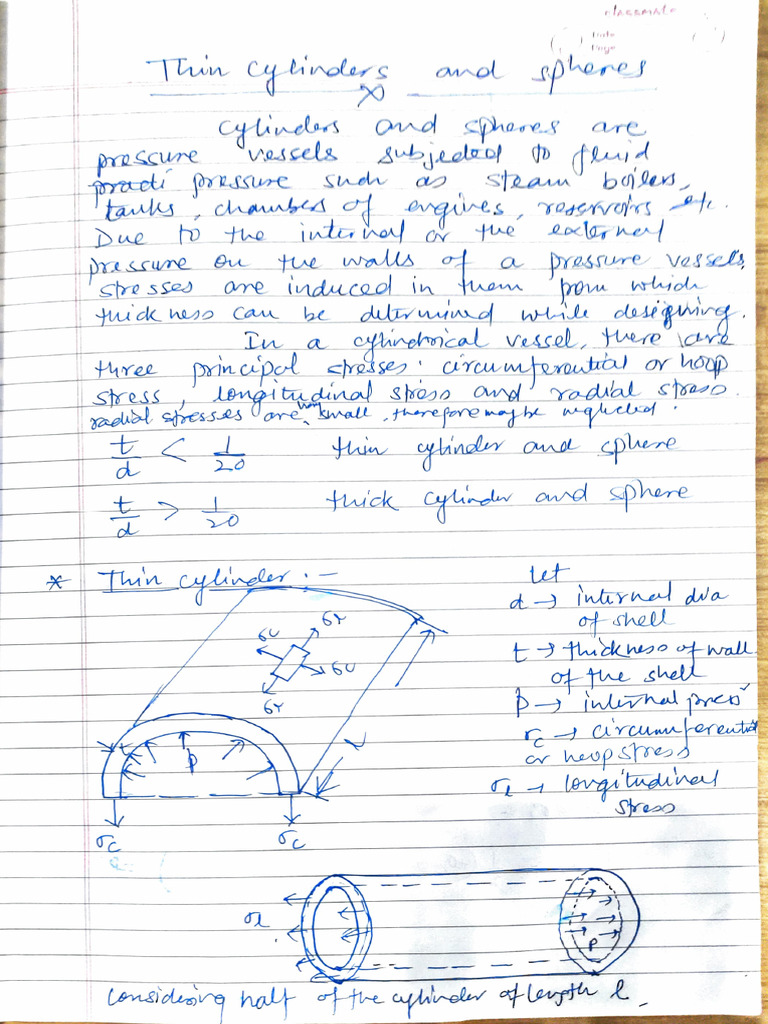 classmate
Date
Page
Thin cylinders and spheres
cylinders and spheres are
pressure vessels subjected to fluid
pradi pressure such as steam boilers,
tanks, chambers of engines, reservoirs etc.
Due to the internal or the external
pressure on the walls of a pressure vessels,
stresses are induced in them from which
thickness can be determined while designing.
In a cylindrical vessel, there are
three principal stresses: circumferential or hoop
stress, longitudinal stress and radial stress.
radial stresses are very small, therefore may be neglected.
t/d < 1/20 thin cylinder and sphere
t/d > 1/20 thick cylinder and sphere
* Thin cylinder :-
Let
d → internal dia
of shell
t → thickness of wall
of the shell
p → internal press
σc → circumferential
or hoop stress
σl → longitudinal
stress
t
p
σc σc
σl
p
considering half of the cylinder of length l